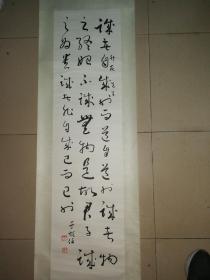 誠者自成也而道自道也誠者物
之終始不誠無物是故君子誠
之為貴誠者非自成己而已也
于右任